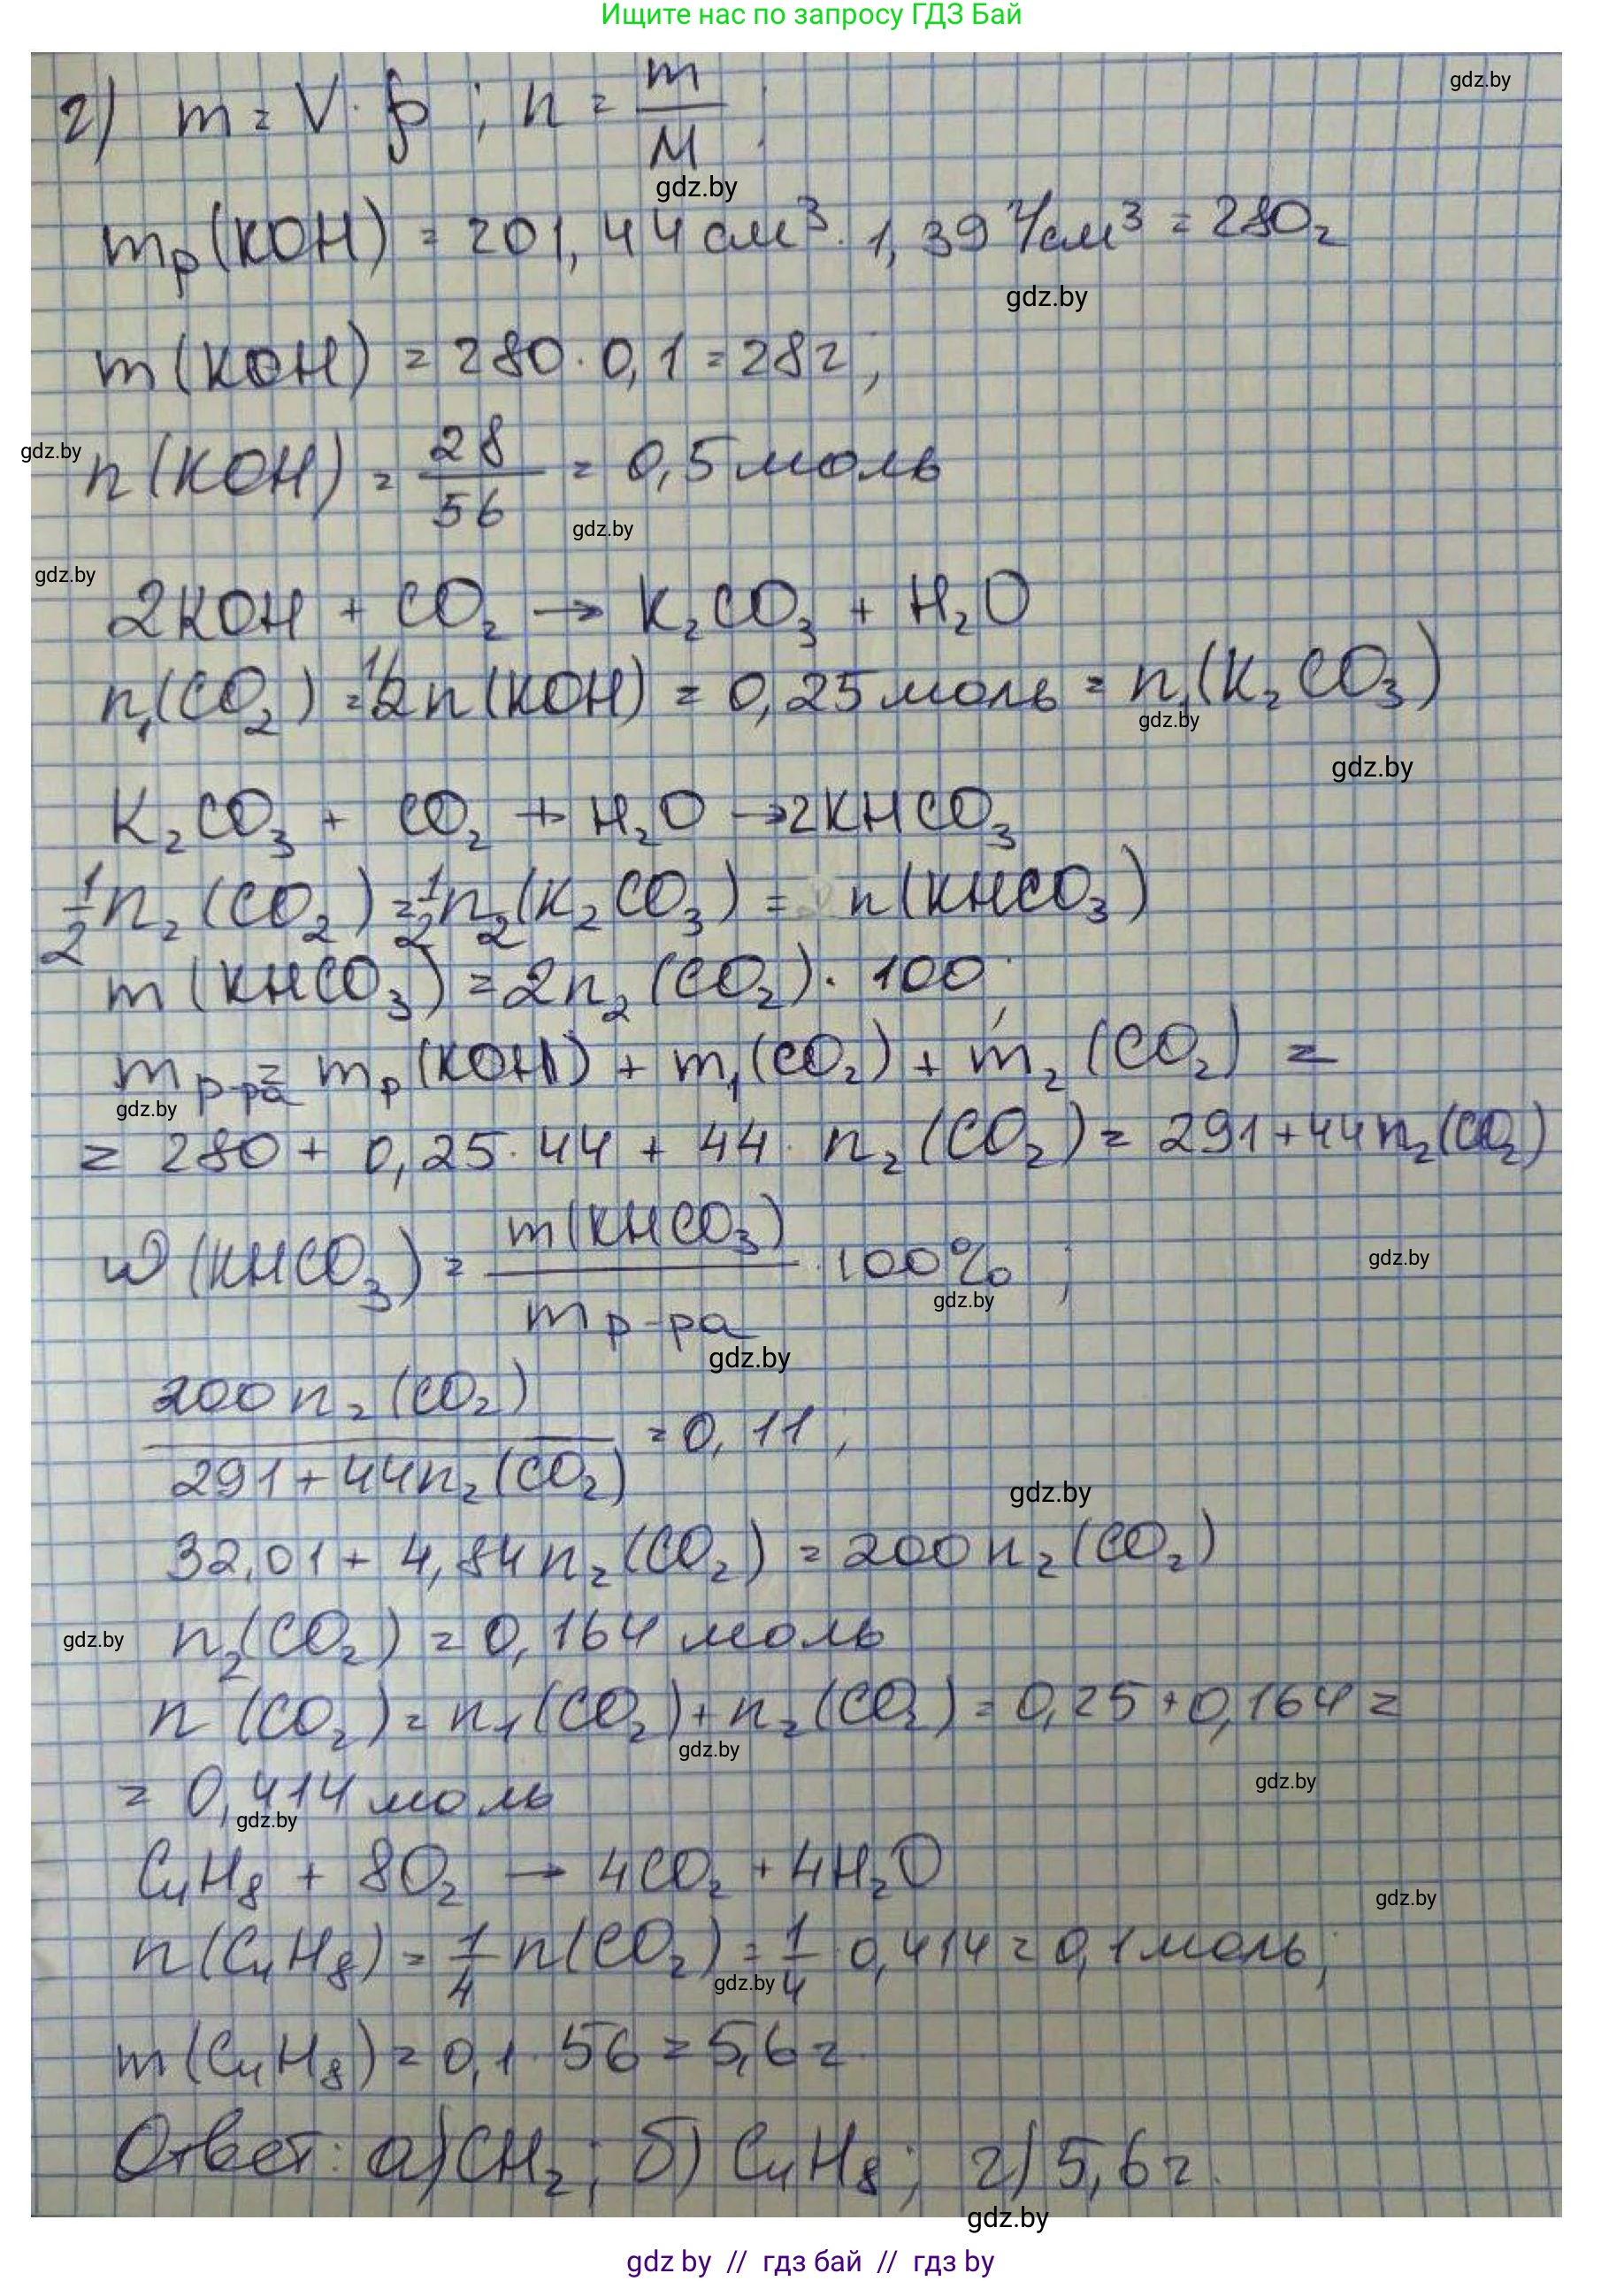 Ищите нас по запросу ГДЗ Бай
gdz.by
г) m = V · ρ ; n = m/M ;
gdz.by
mр(KOH) = 201,44 см³ · 1,39 г/см³ = 280г
gdz.by
m(KOH) = 280 · 0,1 = 28г;
gdz.by
n(KOH) = 28/56 = 0,5 моль
gdz.by
gdz.by
2KOH + CO₂ → K₂CO₃ + H₂O
n₁(CO₂) = 1/2n(KOH) = 0,25 моль = n₁(K₂CO₃)
gdz.by
gdz.by
K₂CO₃ + CO₂ + H₂O → 2KHCO₃
1/2 n₂(CO₂) = 1/2 n₂(K₂CO₃) = n(KHCO₃)
m(KHCO₃) = 2n₂(CO₂) · 100;
mр-ра = mр(KOH) + m₁(CO₂) + m₂(CO₂) =
gdz.by
= 280 + 0,25 · 44 + 44 · n₂(CO₂) = 291 + 44n₂(CO₂)
ω(KHCO₃) = m(KHCO₃)/mр-ра · 100% ;
gdz.by
gdz.by
gdz.by
200n₂(CO₂)/291 + 44n₂(CO₂) = 0,11;
gdz.by
32,01 + 4,84n₂(CO₂) = 200n₂(CO₂)
n₂(CO₂) = 0,164 моль
gdz.by
n(CO₂) = n₁(CO₂) + n₂(CO₂) = 0,25 + 0,164 =
gdz.by
= 0,414 моль
gdz.by
gdz.by
C₄H₈ + 8O₂ → 4CO₂ + 4H₂O
gdz.by
n(C₄H₈) = 1/4 n(CO₂) = 1/4 · 0,414 = 0,1 моль;
gdz.by
m(C₄H₈) = 0,1 · 56 = 5,6г.
Ответ: а) CH₂; б) C₄H₈; г) 5,6г.
gdz.by
gdz by // гдз бай // гдз by